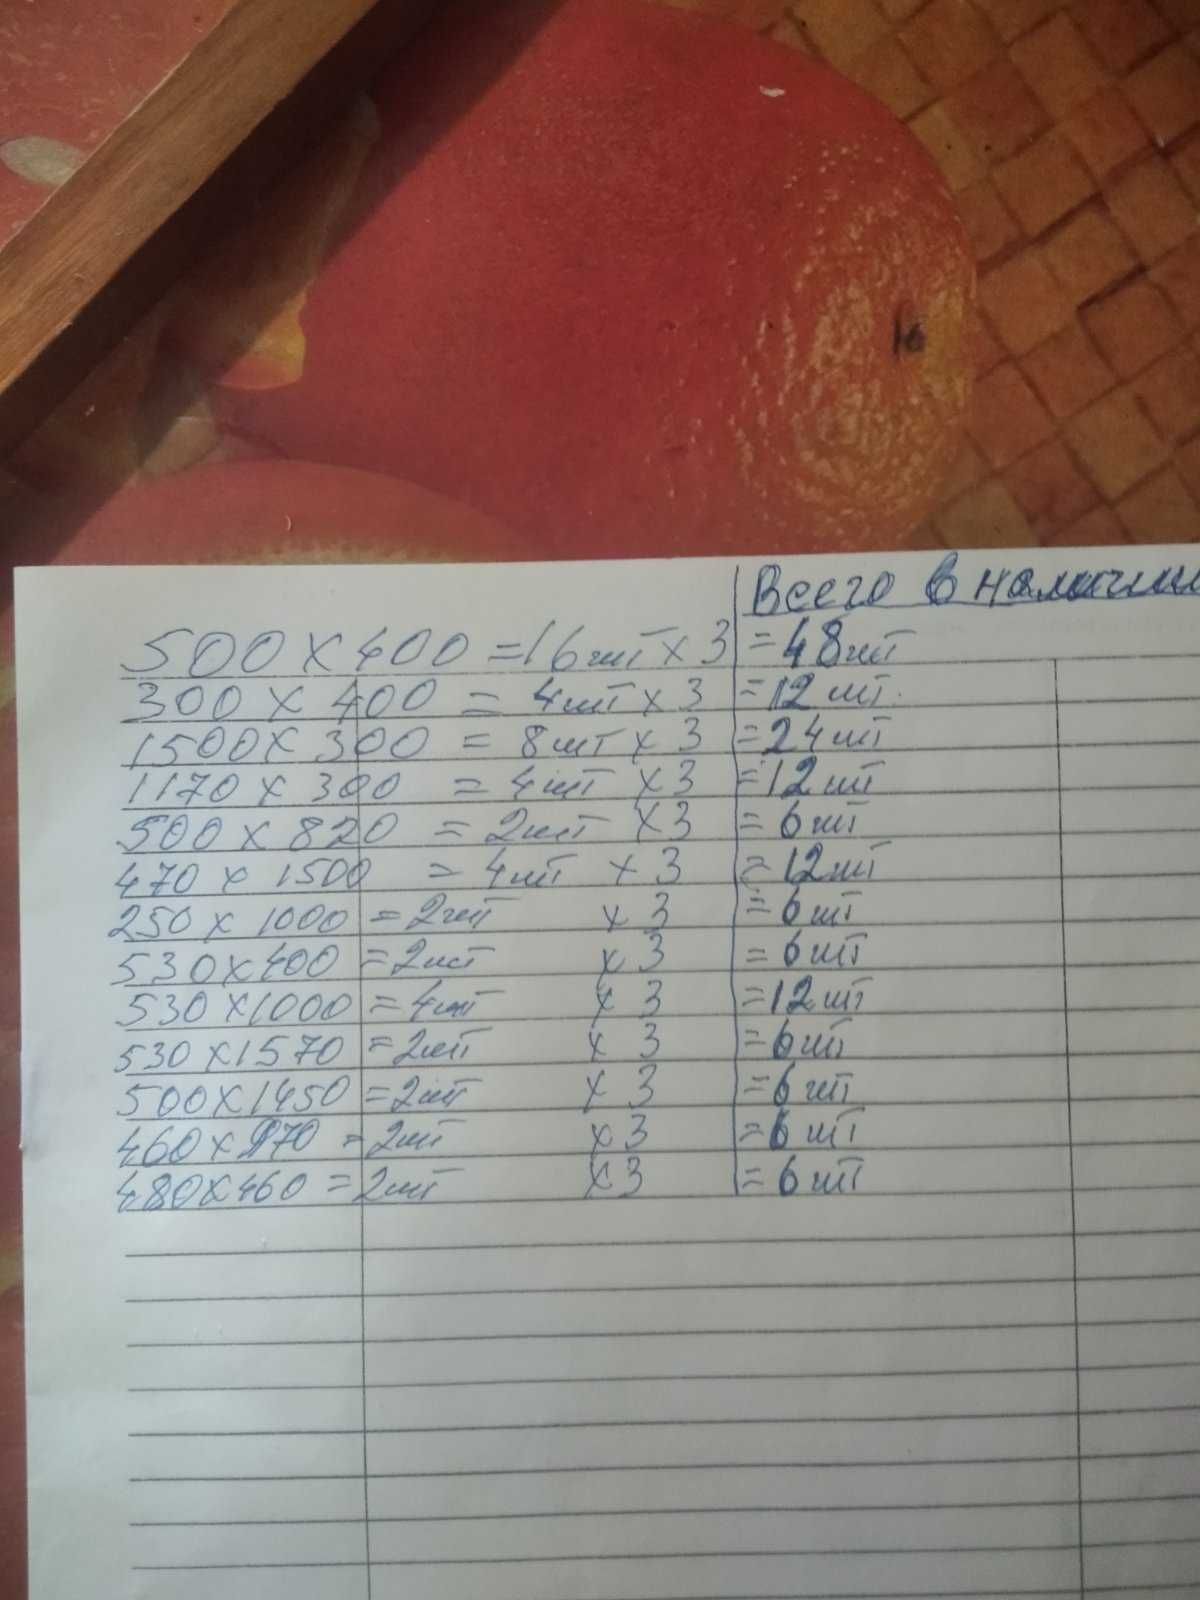 16
Всего в наличии
500 x 400 = 16 шт x 3 = 48 шт
300 x 400 = 4 шт x 3 = 12 шт.
1500 x 300 = 8 шт x 3 = 24 шт
1170 x 300 = 4 шт x 3 = 12 шт
500 x 820 = 2 шт x 3 = 6 шт
470 x 1500 = 4 шт x 3 = 12 шт
250 x 1000 = 2 шт x 3 = 6 шт
530 x 400 = 2 шт x 3 = 6 шт
530 x 1000 = 4 шт x 3 = 12 шт
530 x 1570 = 2 шт x 3 = 6 шт
500 x 1450 = 2 шт x 3 = 6 шт
460 x = 2 шт x 3 = 6 шт
480 x 460 = 2 шт x 3 = 6 шт